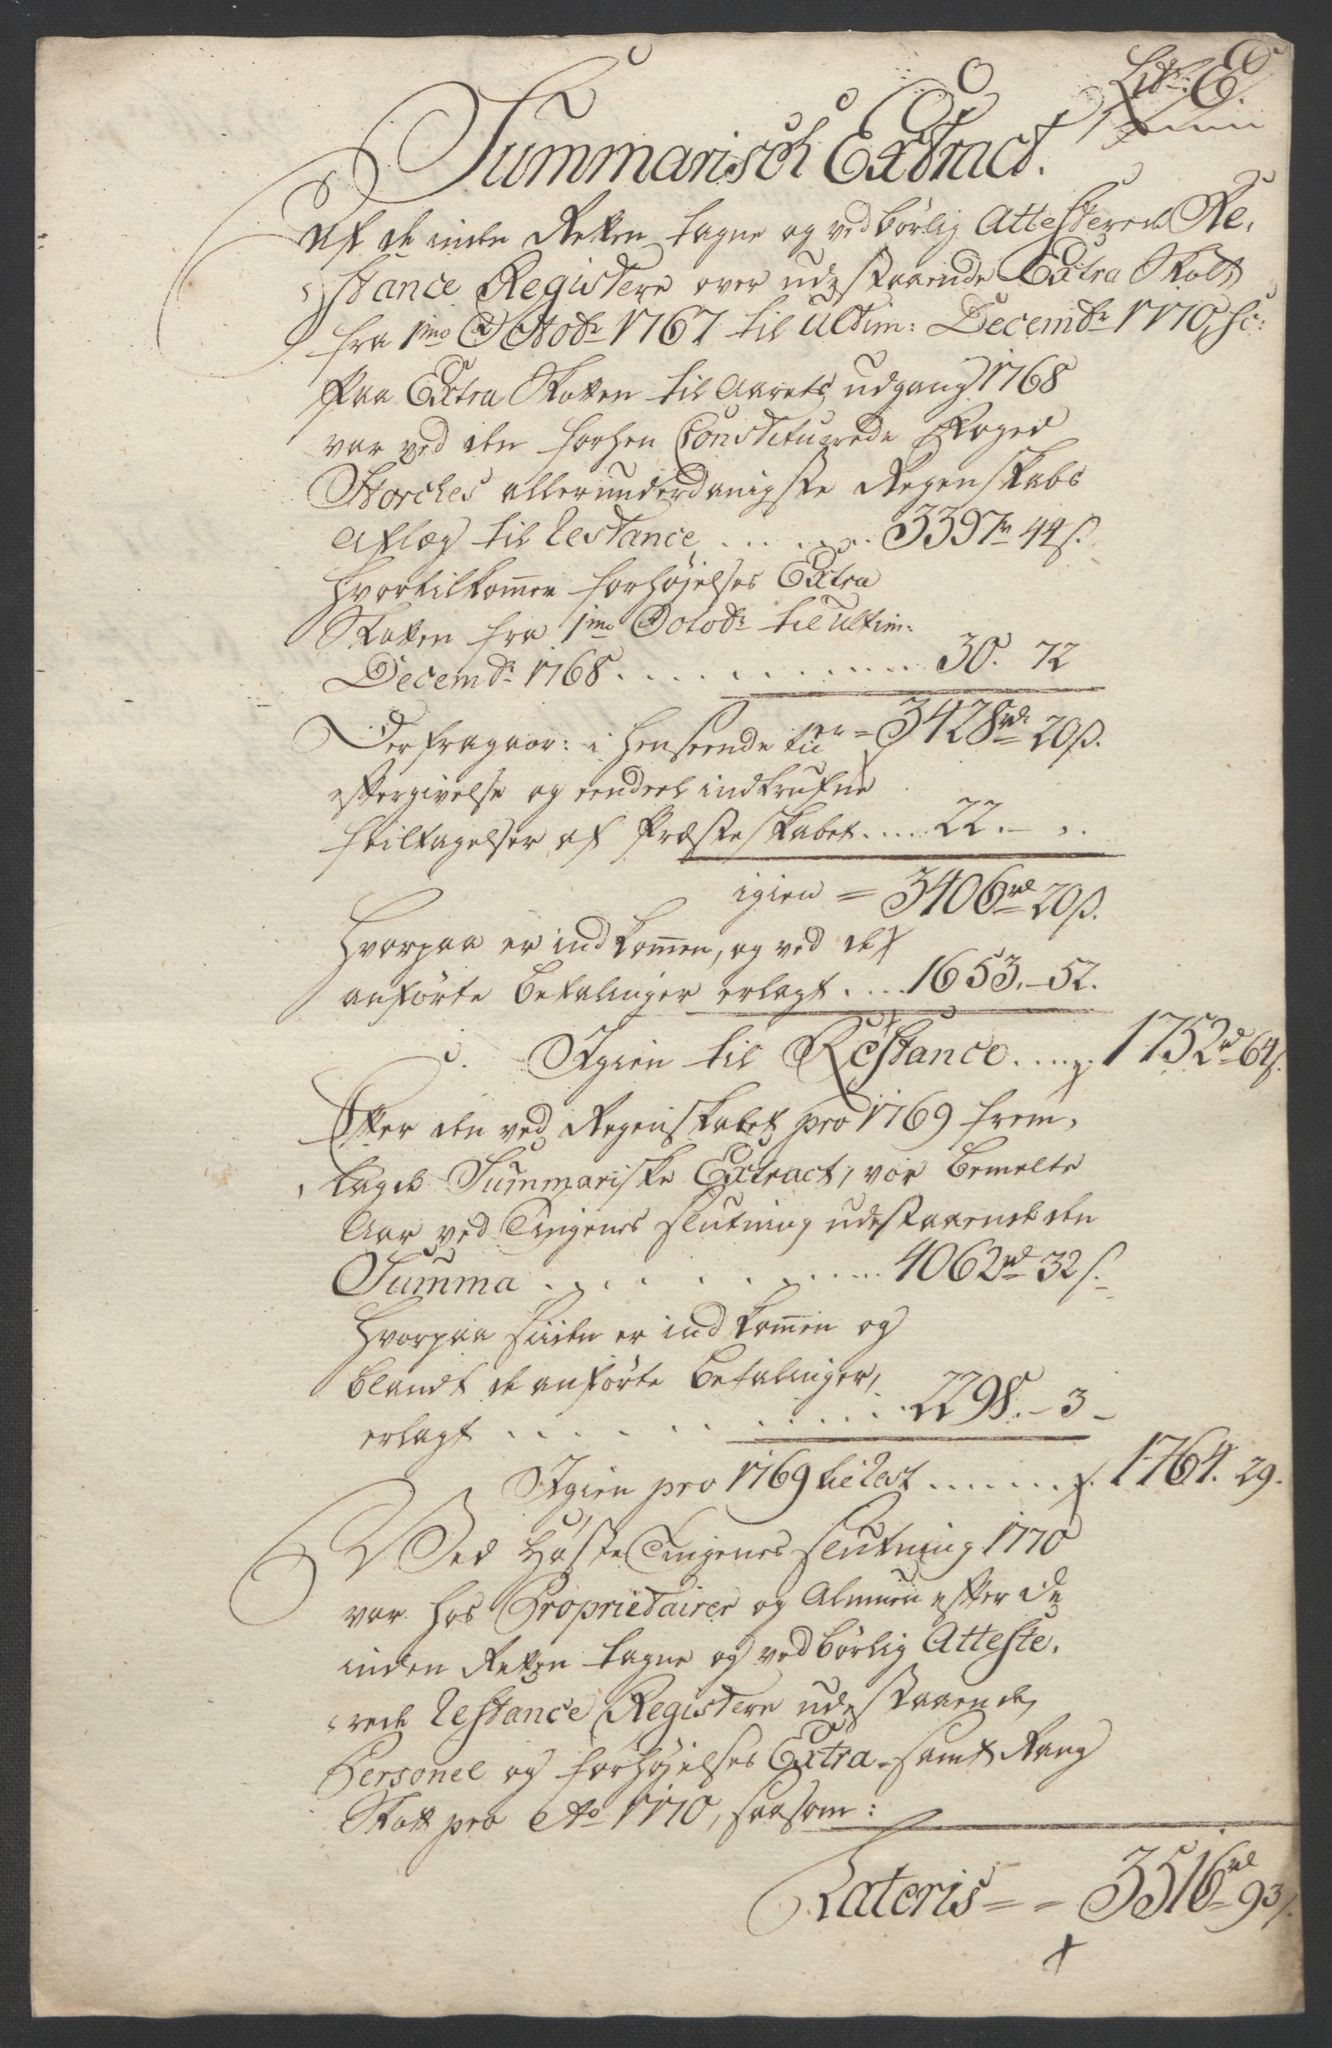 Litr: E.
Summarisch Extract.
Af de inden Retten tagne og vedbörlig Attesterede Re-
stance Registere over udestaaende Extra Skatt
fra 1mo Octobr 1767 til ultim: Decembr 1770, sc:
Paa Extra Skatten til Aarets udgang 1768
var ved den forhen Constituerede Foged
Storches allerunderdanigste Regenskabs
Aflæg til Restance . . . . . 3397rd 44s.
Hvortilkommer forhøjelses Extra
Skatten fra 1mo Octobr til ultim:
Decembr 1768 . . . . . . . . . . 30. 72
= 3428rd 20s.
Derfragaar: i henseende til
eftergivelse og eendeel indtrufne
feiltagelser af Præsteskabet . . . . 22. - .
igien = 3406rd 20s.
Hvorpaa er indkommen, og ved de
anförte Betalinger erlagt . . . . 1653. - 52.
Igien til Restance . . . . 1752rd 64s.
Efter den ved Regenskabet pro 1769 frem-
lagde Summariske Extract, var bemelte
Aar ved Tingenes slutning udestaaende den
Summa . . . . . . . . . 4062rd 32s.
Hvorpaa siiden er indkommen og
blandt de anförte Betalinger,
erlagt . . . . . . . . . . . 2298. - 3 -
Igien pro 1769 til Rest . . . . . . 1764. 29.
Ved Høste Tingenes slutning 1770
var hos Proprietairer og Almuen efter de
inden Retten tagne og vedbörlig Atteste-
rede Restance Registere udestaaende,
Personel og forhøjelses Extra- samt Rang
Skatt pro Ao 1770, saasom:
Lateris = = 3516rd 93s.